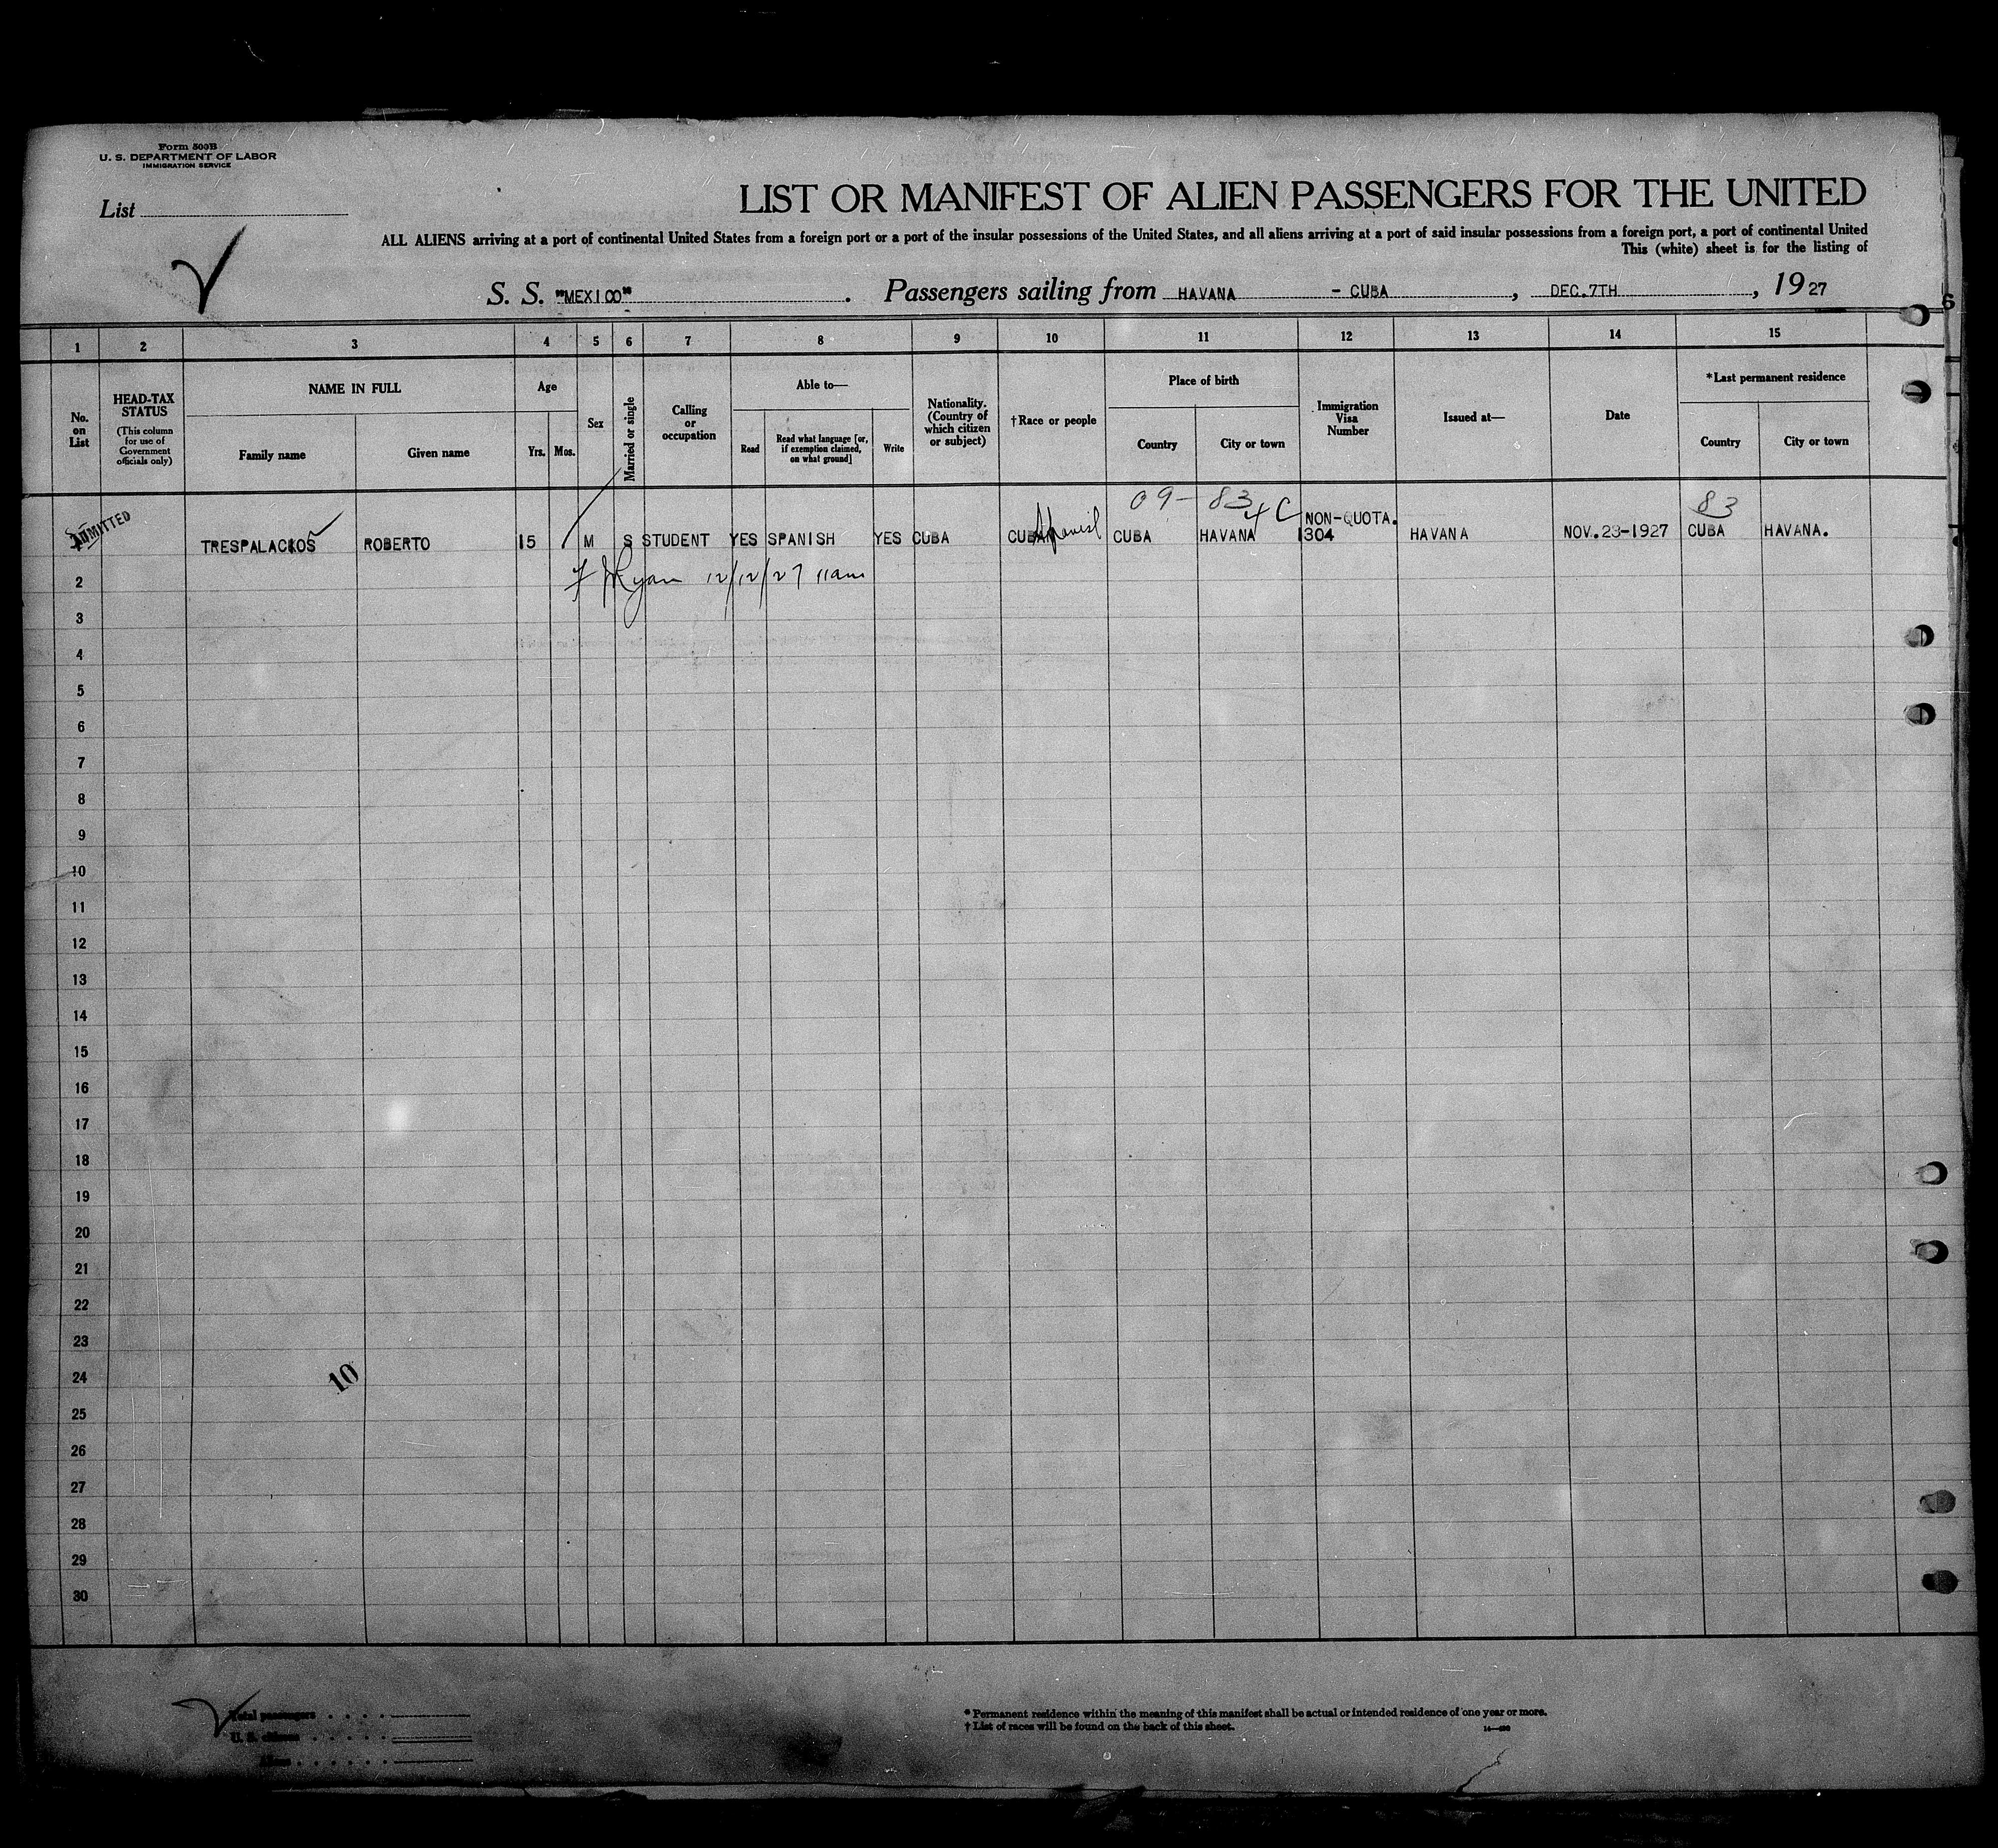 Form 500B
U. S. DEPARTMENT OF LABOR
IMMIGRATION SERVICE
List
LIST OR MANIFEST OF ALIEN PASSENGERS FOR THE UNITED
ALL ALIENS arriving at a port of continental United States from a foreign port or a port of the insular possessions of the United States, and all aliens arriving at a port of said insular possessions from a foreign port, a port of continental United
This (white) sheet is for the listing of
S. S. "MEXICO" . Passengers sailing from HAVANA - CUBA , DEC.7TH , 1927
6
1 2 3 4 5 6 7 8 9 10 11 12 13 14 15
No. on List
HEAD-TAX STATUS
(This column for use of Government officials only)
NAME IN FULL
Family name
Given name
Age
Yrs. Mos.
Sex
Married or single
Calling or occupation
Able to—
Read
Read what language [or, if exemption claimed, on what ground]
Write
Nationality. (Country of which citizen or subject)
†Race or people
Place of birth
Country
City or town
Immigration Visa Number
Issued at—
Date
*Last permanent residence
Country
City or town
09- 83 4C 83
ADMITTED TRESPALACIOS ROBERTO 15 M S STUDENT YES SPANISH YES CUBA CUBAN Spanish CUBA HAVANA NON-QUOTA. 1304 HAVANA NOV.23-1927 CUBA HAVANA.
2 Ryan 12/12/27 11am
3
4
5
6
7
8
9
10
11
12
13
14
15
16
17
18
19
20
21
22
23
24 10
25
26
27
28
29
30
Total passengers
U. S. citizens
Aliens
* Permanent residence within the meaning of this manifest shall be actual or intended residence of one year or more.
† List of races will be found on the back of this sheet.